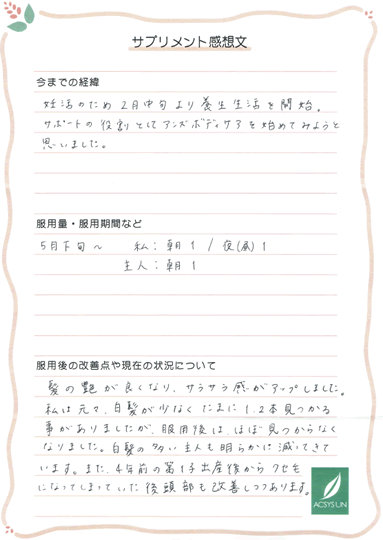 サプリメント感想文
今までの経緯
妊活のため2月中旬より養生生活を開始。
サポートの役割としてアンズボディケアを始めてみようと
思いました。
服用量・服用期間など
5月下旬～ 私:朝1 / 夜(昼)1
主人:朝1
服用後の改善点や現在の状況について
髪の艶が良くなり、サラサラ感がアップしました。
私は元々、白髪が少なくたまに1.2本見つかる
事がありましたが、服用後は、ほぼ見つからなく
なりました。白髪の多い主人も明らかに減ってきて
います。また、4年前の第1子出産後からクセを
になってしまっていた後頭部も改善しつつあります。
ACSYS UN